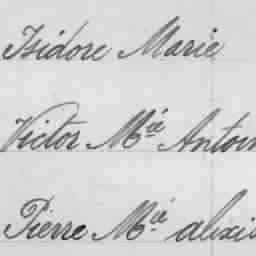 Isidore Marie
Victor Mié Antoin
Pierre Mié alexis